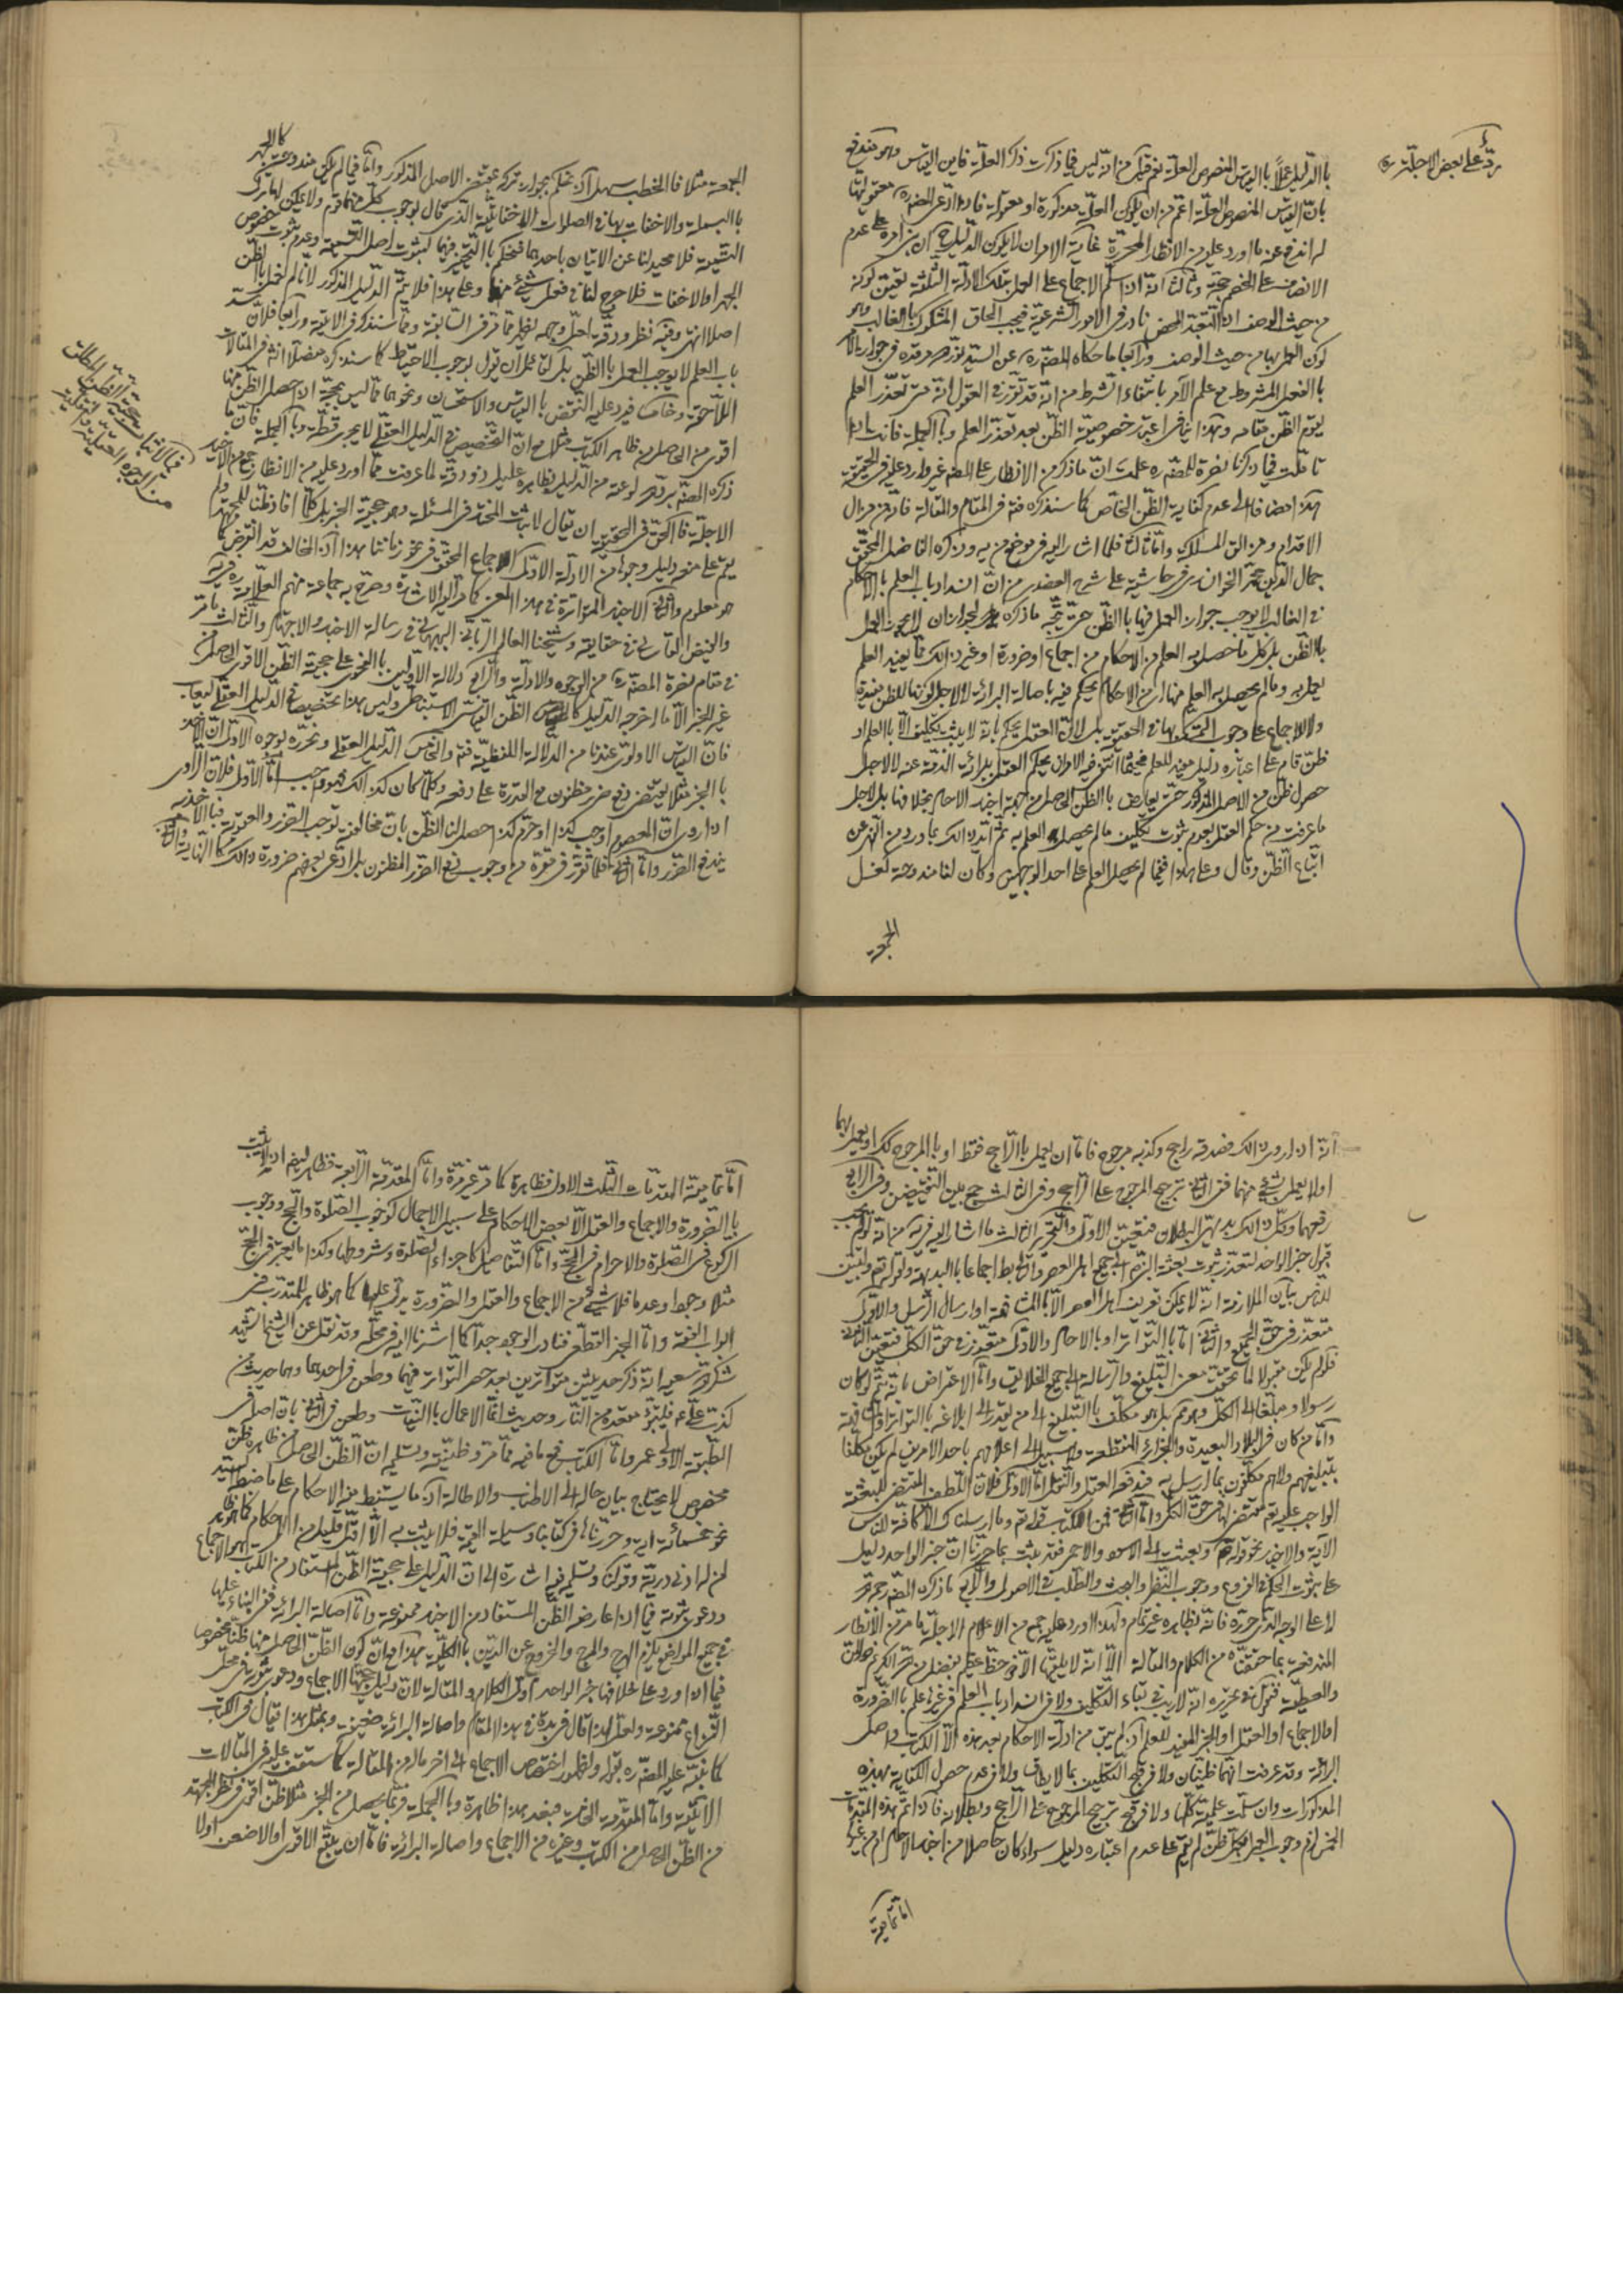 ردّ على بعض الاجلّة ره
باالدليل عملاً باالقياس المنصوص العلة نعم قيل من انه ليس فيما ذكرت ذكر العلّة فاين القياس وهو يندفع
بانّ القياس المنصوص العلّة اعمّ من ان يكون العلّة مذكورة او
لم اندفع عنه ما اورد عليه من الانظار المحررة غاية الامر ان لا يكون الدليل على عدم
الانصاف على الخصم حجة وثالثا انه اذا سلم الاجماع على العمل بتلك الادلة الثلثة تعيّن كونه
من حيث الوصف اذ التعبّد المحض نادر في الامور الشرعية فيجب الحاق المشكوك باالغالب وهو
كون العمل بها من حيث الوصف ورابعا ما حكاه المصنّف ره عن السيّد
باالفعل المشروط مع علم الآمر بانتفاء الشرط من انّه قد تقرّر في العقول انه متى تعذّر العلم
يقوم الظن مقامه وهذا ينافي اعتبار خصوصية الظن بعد تعذّر العلم وباالجملة فانت اذا
تامّلت فيما ذكرنا نصرة للمصنّف ره علمت انّ ما ذكر من الانظار على المصنف غير وارد عليه
هذا مضافا الى عدم كفاية الظن الخاص كما سنذكره في المقام والمقالة فانه من مزال
الاقدام ومزالق المسالك وامّا ثالثا فلما اشار اليه في موضع من وذكره الفاضل المحقق
جمال الدين محمد الخوانساري في حاشيته على شرح العضدي من انّ انسداد باب العلم باالاحكام
في الغالب لا يوجب جواز العمل فيها باالظن حتى يتّجه ما ذكره لجواز ان لا يجوز العمل
باالظن بل كل ما حصل به العلم من الاحكام من اجماع او ضرورة او غير ذلك مما يفيد العلم
يعمل به وما لم يحصل به العلم منها من الاحكام يحكم فيه باصالة البرائة لا لاجل كونها للظن مفيدة
ولا للاجماع على وجوب التمسك بها في الحقيقة بل لانّ العقل يحكم بانه لا يثبت تكليف الّا باالعلم او
ظنّ قام على اعتباره دليل مفيد للعلم ففيما انتفى فيه الامران يحكم العقل ببرائة الذمّة عنه لا لاجل
حصول ظنّ من الاصل المذكور حتى يعارض باالظن الحاصل من جهة اخبار الاحاد بخلافها بل لاجل
ما عرفت من حكم العقل بعدم ثبوت تكليف ما لم يحصل العلم به ثم ايّد ذلك بما ورد من النهي عن
اتباع الظنّ وقال وعلى هذا ففيما لم يحصل العلم على احد الوجهين وكان لنا مندوحة كغسل
الجمعة
الجمعة مثلا فاالخطب سهل اذ نحكم بجواز تركه بمقتضى الاصل المذكور وامّا فيما لم يكن مندوحة كاالجهر
باالبسملة والاخفات بها في الصلوات الاخفاتية التي قال بوجوب كل منهما قوم ولا يمكن لنا ترك
التسمية فلا محيد لنا عن الاتيان باحدهما فنحكم باالتخيير فيهما لثبوت اصل التسمية وعدم ثبوت خصوص
الجهر او الاخفات فلا حرج لنا في فعل شيء منهما وعلى هذا فلا يتم الدليل المذكور لانّا لم نعمل باالظن
اصلا انتهى وفيه نظر ودقة
باب العلم لا يوجب العمل باالظن بل لقائل ان يقول بوجوب الاحتياط كما سنذكره مفصّلا في المقالات
اللاحقة وخامسا فيرد عليه النقض باالقياس والاستحسان ونحوهما مما ليس بحجة اذا حصل الظن منها
اقوى من الحاصل من ظاهر الكتاب مثلا مع انّ التخصيص في الدليل العقلي لا يجري قطّ وباالجملة فانّ ما
ذكره المصنّف
الاجلّة فاالحق في التحقيق ان يقال لاثبات المختار في المسئلة وهو حجية الخبر بل كلّما افاد ظنّا للمجتهد
يقم على منعه دليل وجوها من الادلة الاوّل الاجماع المحقق في نحو زماننا هذا اذ المخالف قد انقرض كما
هو معلوم والثاني الاخبار المتواترة في هذا المعنى كما مرّ اليه الاشارة وصرّح به جماعة منهم العلّامة ره في
والفيض القاساني في حقايقه وشيخنا العالم الرباني البهبهاني في رسالة الاخبار والاجتهاد والثالث ما مرّ
في مقام نصرة المصنّف ره من الوجوه والادلّة والرابع دلالة الاوّلين باالفحوى على حجية الظن الاقوى الحاصل من
غير الخبر الّا ما اخرجه الدليل كاالظن القياسي الاستنباطي وليس هذا تخصيصا في الدليل العقلي ليعاب
فانّ القياس الاولويّ عندنا من الدلالة اللفظيّة فتد والخامس الدليل العقلي ونحرّره بوجوه الاول انّ الاخذ
باالخبر مثلا يقتضي دفع ضرر مظنون مع القدرة على دفعه وكلّما كان كذلك فهو واجب امّا الاوّل فلانّ الراوي
اذا روى انّ المعصوم اوجب كذا او حرّم كذا حصل لنا الظنّ بانّ مخالفته توجب الضرر والعقوبة فباالاخذ به
يندفع الضرر وامّا الثاني فلما تقرّر في مقرّه من وجوب دفع الضرر المظنون بل ادّعى بعضهم ضرورة ذلك كما في النهاية والثاني
في الاشارة الى حجية الظن المطلق
من الوجوه العقلية والنقلية
انّه اذا روى ذلك فصدقه راجح وكذبه مرجوح فامّا ان يعمل باالراجح فقط او باالمرجوح كذلك او يعمل بهما
او لا يعمل بشيء منهما ففي الثاني ترجيح المرجوح على الراجح وفي الثالث جمع بين النقيضين وفي الرابع
رفعهما وكلّ ذلك بديهيّ البطلان فتعيّن الاوّل والتحرير الثالث ما اشار اليه في من انّه لو لم يجب
قبول خبر الواحد لتعذّر ثبوت بعثة النبي ص الى جميع اهل العصر والتالي بط اجماعا باالبديهة ولقوله تع ولتبيّن
للناس بيان الملازمة انّه لا يمكن تعريف اهل العصر الّا باالمشافهة او ارسال الرسل والاوّل
متعذّر في حقّ الجميع والثاني امّا باالتواتر او باالاحاد والاوّل متعذّر في حقّ الكلّ فتعيّن الثاني
فلو لم يكن مقبولا لما تحقّق معنى التبليغ والرسالة الى جميع الخلائق وامّا الاعتراض بانّه يتمّ لو كان
رسولا ومبلّغا الى الكلّ وهو مم بل هو مكلّف باالتبليغ الى من يقدر الى ابلاغه باالتواتر او
وامّا من كان في البلاد البعيدة والجزائر المنقطعة ولا سبيل الى اعلامهم باحد الامرين لم يكن مكلّفا
بتبليغهم ولا هم مكلّفون بما ارسل به فيدفعه العقل والنقل امّا الاوّل فلانّ اللطف المقتضي للبعثة
الواجب عليه تع مقتضى لها في حقّ الكلّ وامّا الثاني فمن الكتاب قوله تع وما ارسلناك الّا كافّة للناس
الآية والاخبار نحو قوله ص وبعثت الى الاسود والاحمر فقد ثبت بما حرّرنا انّ خبر الواحد دليل
على ثبوت الحكم في الفروع ووجوب النظر والبحث والطلب في الاصول والرابع ما ذكره المصنّف رحمه
لا على الوجه الذي حرّره فانّه بظاهره غير تمام ولهذا اورد عليه جمع من الاعلام الاجلّة ما مرّ من الانظار
المندفعة بما حققناه من الكلام والمقالة الّا انّه لا يلقّيها الّا ذو حظّ عظيم
والعطيّة فنقول في تحريره انّه لا ريب في بقاء التكليف ولا في انسداد باب العلم في غير ما علم باالضرورة
او الاجماع او العقل او الخبر المفيد للعلم اذ لم يبق من ادلّة الاحكام بعد هذه الّا الكتاب واصل
البرائة وقد عرفت انّهما ظنّيّان ولا في قبح التكليف بما لا يطاق ولا في عدم حصول الكفاية بهذه
المذكورات وان سلّمت علميّة كلّها ولا في قبح ترجيح المرجوح على الراجح وبطلانه فاذا تمّ هذه المقدّمات
الخمس لزم وجوب العمل بكلّ ظنّ لم يقم على عدم اعتباره دليل سواء كان حاصلا من اخبار الاحاد ام من غيرها
امّا تماميّة
امّا تماميّة المقدّمات الثلث الاول فظاهرة كما مرّ غير مرّة وامّا المقدّمة الرابعة فظاهر ايضا اذ لا يثبت
باالضرورة والاجماع والعقل الّا بعض الاحكام على سبيل الاجمال كوجوب الصلوة والحجّ ووجوب
الركوع في الصلوة والاحرام في الحجّ وامّا التفاصيل كاجزاء الصلوة وشروطها وكذا ما يعتبر في الحجّ
مثلا وجودا وعدما فلا شيء من الاجماع والعقل والضرورة يدلّ عليها كما هو ظاهر للمتدرّب في
ابواب الفقه وامّا الخبر القطعي فنادر الوجود جدّا كما اشرنا اليه في محلّه وقد نقل عن الشيخ الشهيد
شكر سعيه انّه ذكر حديثين متواترين بعد حصر التواتر فيهما وطعن في احدهما وهما حديث من
كذب عليّ فليتبوّء مقعده من النار وحديث انّما الاعمال باالنيّات وطعن في الثاني بانّ اصله في
الطبقة الاولى عمر وامّا الكتاب فمع ما فيه ممّا مرّ وظنّيّته وتسليم انّ الظنّ الحاصل من ظاهره ظنّ
مخصوص لا يحتاج بيان حاله الى الاطناب والاطالة اذ ما يستنبط منه الاحكام على ما ضبطه السيّد
نحو خمسمائة اية وحرّرناها في كتابنا وسيلة فلا يثبت به الّا اقلّ قليل من الاحكام كما هو ظاهر
لمن له ادنى دربة وقولنا وتسليم فيه اشارة الى انّ الدليل على حجّية الظنّ المستفاد من الكتاب هو الاجماع
ودعوى ثبوته فيما اذا عارضه الظنّ المستفاد من الاخبار ممنوعة وامّا اصالة البرائة ففي البناء عليها
في جميع المواضع يلزم الهرج والمرج والخروج عن الدين باالكلّيّة هذا مع انّ كون الظنّ الحاصل منها ظنّا مخصوصا
فيما اذا ورد على خلافها خبر الواحد اوّل الكلام والمقالة لانّ دليل حجّيّتها الاجماع ودعوى ثبوته في محلّ
النزاع ممنوعة ولعلّ لهذا قال فريدة في هذا المقام واصالة البرائة ضعيفة وبمثل هذا يقال في الكتاب
كما نبّه عليه المصنّف ره بقوله ولظهور اختصاص الاجماع الى اخر ما له من المقالة كما ستقف عليه في المقالات
الآتية وامّا المقدّمة الخامسة فبعد هذا ظاهرة وباالجملة ربما يحصل من الخبر مثلا ظنّ اقوى في نظر المجتهد
من الظنّ الحاصل من الكتاب وغيره من الاجماع واصالة البرائة فامّا ان يتّبع الاقوى او الاضعف او لا